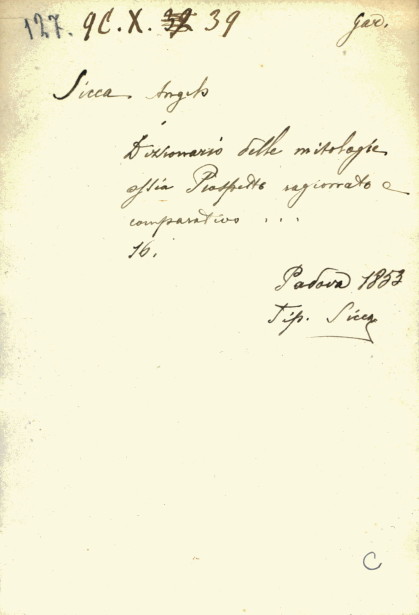 127. 9C. X. 39 39 Gar.
Sicca Angelo
Dizionario delle mitologie
ossia Prospetto ragionato e
comparativo ...
16.
Padova 1853
Tip. Sicca
C